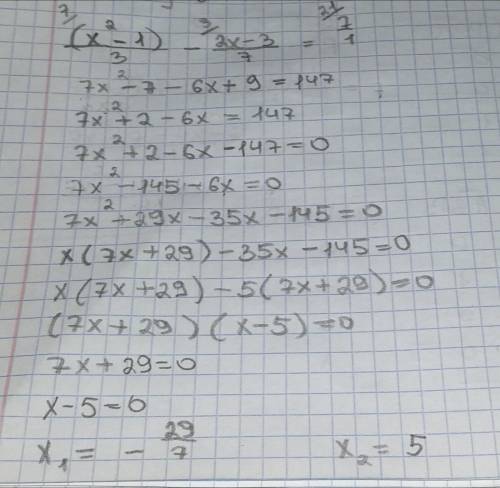 ⁷/(x² - 1)/3 - ³/(2x - 3)/7 = ²¹/7/1
7x² - 7 - 6x + 9 = 147
7x² + 2 - 6x = 147
7x² + 2 - 6x - 147 = 0
7x² - 145 - 6x = 0
7x² + 29x - 35x - 145 = 0
x(7x + 29) - 35x - 145 = 0
x(7x + 29) - 5(7x + 29) = 0
(7x + 29)(x - 5) = 0
7x + 29 = 0
x - 5 = 0
x₁ = - 29/7 x₂ = 5